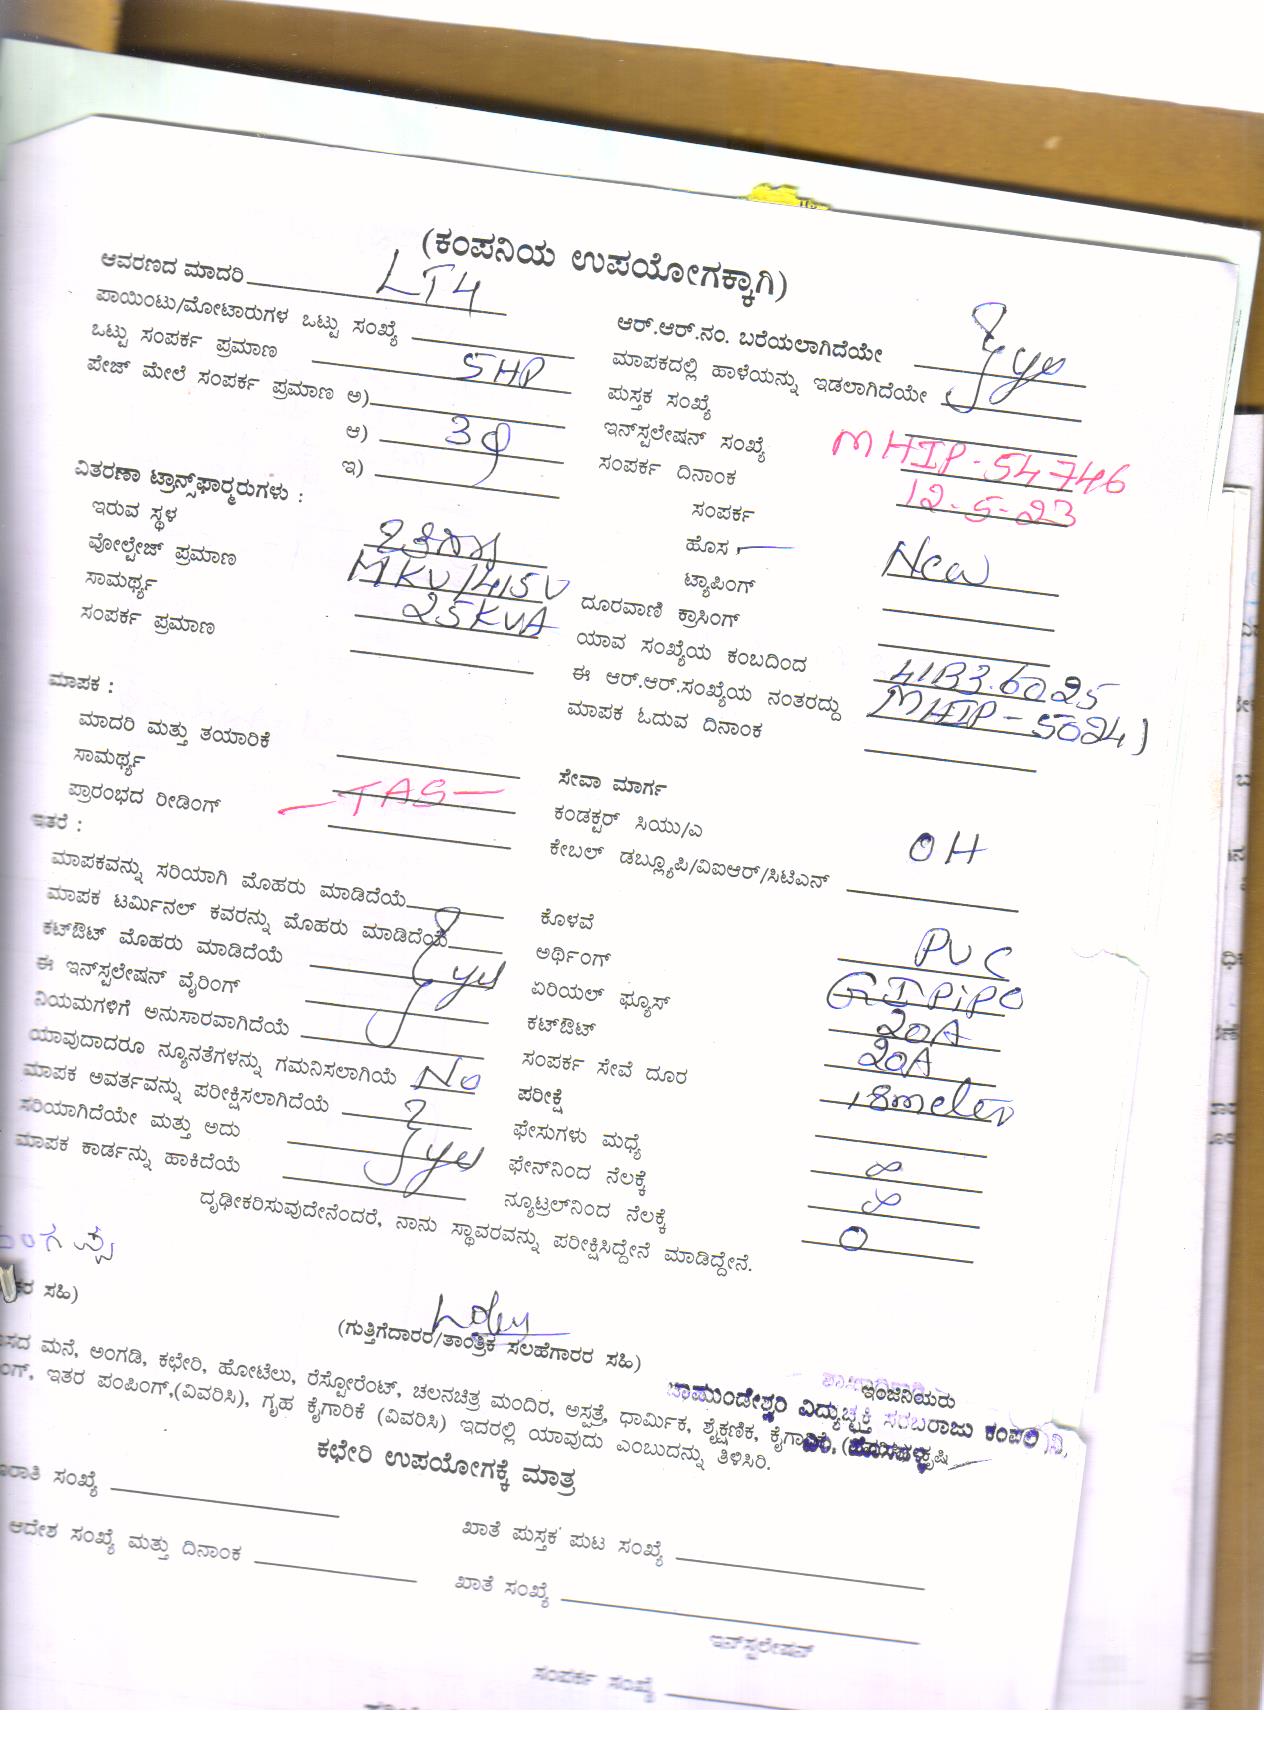 (ಕಂಪನಿಯ ಉಪಯೋಗಕ್ಕಾಗಿ)
ಆವರಣದ ಮಾದರಿ LT4
ಪಾಯಿಂಟು/ಮೋಟಾರುಗಳ ಒಟ್ಟು ಸಂಖ್ಯೆ
ಒಟ್ಟು ಸಂಪರ್ಕ ಪ್ರಮಾಣ 5HP
ಪೇಜ್ ಮೇಲೆ ಸಂಪರ್ಕ ಪ್ರಮಾಣ ಅ)
ಆ) 3φ
ಇ)
ವಿತರಣಾ ಟ್ರಾನ್ಸ್‌ಫಾರ್ಮರುಗಳು :
ಇರುವ ಸ್ಥಳ
ವೋಲ್ಟೇಜ್ ಪ್ರಮಾಣ 11KV/415V
ಸಾಮರ್ಥ್ಯ 25KVA
ಸಂಪರ್ಕ ಪ್ರಮಾಣ
ಮಾಪಕ :
ಮಾದರಿ ಮತ್ತು ತಯಾರಿಕೆ
ಸಾಮರ್ಥ್ಯ
ಪ್ರಾರಂಭದ ರೀಡಿಂಗ್
ಇತರೆ :
ಮಾಪಕವನ್ನು ಸರಿಯಾಗಿ ಮೊಹರು ಮಾಡಿದೆಯೆ
ಮಾಪಕ ಟರ್ಮಿನಲ್ ಕವರನ್ನು ಮೊಹರು ಮಾಡಿದೆಯೆ
ಕಟ್‌ಔಟ್ ಮೊಹರು ಮಾಡಿದೆಯೆ yes
ಈ ಇನ್‌ಸ್ಟಲೇಷನ್ ವೈರಿಂಗ್
ನಿಯಮಗಳಿಗೆ ಅನುಸಾರವಾಗಿದೆಯೆ
ಯಾವುದಾದರೂ ನ್ಯೂನತೆಗಳನ್ನು ಗಮನಿಸಲಾಗಿಯೆ No
ಮಾಪಕ ಅವರ್ತವನ್ನು ಪರೀಕ್ಷಿಸಲಾಗಿದೆಯೆ
ಸರಿಯಾಗಿದೆಯೇ ಮತ್ತು ಅದು yes
ಮಾಪಕ ಕಾರ್ಡನ್ನು ಹಾಕಿದೆಯೆ
ಆರ್.ಆರ್.ನಂ. ಬರೆಯಲಾಗಿದೆಯೇ
ಮಾಪಕದಲ್ಲಿ ಹಾಳೆಯನ್ನು ಇಡಲಾಗಿದೆಯೇ yes
ಪುಸ್ತಕ ಸಂಖ್ಯೆ
ಇನ್‌ಸ್ಟಲೇಷನ್ ಸಂಖ್ಯೆ MHIP-54746
ಸಂಪರ್ಕ ದಿನಾಂಕ 12-5-23
ಸಂಪರ್ಕ
ಹೊಸ New
ಟ್ಯಾಪಿಂಗ್
ದೂರವಾಣಿ ಕ್ರಾಸಿಂಗ್
ಯಾವ ಸಂಖ್ಯೆಯ ಕಂಬದಿಂದ
ಈ ಆರ್.ಆರ್.ಸಂಖ್ಯೆಯ ನಂತರದ್ದು MHIP-50241
ಮಾಪಕ ಓದುವ ದಿನಾಂಕ
ಸೇವಾ ಮಾರ್ಗ
ಕಂಡಕ್ಟರ್ ಸಿಯು/ಎ OH
ಕೇಬಲ್ ಡಬ್ಲ್ಯೂಪಿ/ವಿಐಆರ್/ಸಿಟಿಎಸ್
ಕೊಳವೆ PVC
ಅರ್ಥಿಂಗ್ GI Pipe
ಏರಿಯಲ್ ಫ್ಯೂಸ್ 20A
ಕಟ್‌ಔಟ್ 20A
ಸಂಪರ್ಕ ಸೇವೆ ದೂರ 18meter
ಪರೀಕ್ಷೆ
ಫೇಸುಗಳು ಮಧ್ಯೆ ∞
ಫೇಸ್‌ನಿಂದ ನೆಲಕ್ಕೆ ∞
ನ್ಯೂಟ್ರಲ್‌ನಿಂದ ನೆಲಕ್ಕೆ 0
ದೃಢೀಕರಿಸುವುದೇನೆಂದರೆ, ನಾನು ಸ್ಥಾವರವನ್ನು ಪರೀಕ್ಷಿಸಿದ್ದೇನೆ ಮಾಡಿದ್ದೇನೆ.
ಸಹಿ)
(ಗುತ್ತಿಗೆದಾರರ/ತಾಂತ್ರಿಕ ಸಲಹೆಗಾರರ ಸಹಿ)
ಇಂಜಿನಿಯರು
ಚಾಮುಂಡೇಶ್ವರಿ ವಿದ್ಯುಚ್ಛಕ್ತಿ ಸರಬರಾಜು ಕಂಪನಿ ನಿ,
ಮನೆ, ಅಂಗಡಿ, ಕಛೇರಿ, ಹೋಟೆಲು, ರೆಸ್ಟೋರೆಂಟ್, ಚಲನಚಿತ್ರ ಮಂದಿರ, ಅಸ್ಪತ್ರೆ, ಧಾರ್ಮಿಕ, ಶೈಕ್ಷಣಿಕ, ಕೃಷಿ
ಇತರ ಪಂಪಿಂಗ್,(ವಿವರಿಸಿ), ಗೃಹ ಕೈಗಾರಿಕೆ (ವಿವರಿಸಿ) ಇದರಲ್ಲಿ ಯಾವುದು ಎಂಬುದನ್ನು ತಿಳಿಸಿರಿ.
ಕಛೇರಿ ಉಪಯೋಗಕ್ಕೆ ಮಾತ್ರ
ಸಂಖ್ಯೆ
ಖಾತೆ ಪುಸ್ತಕ ಪುಟ ಸಂಖ್ಯೆ
ಆದೇಶ ಸಂಖ್ಯೆ ಮತ್ತು ದಿನಾಂಕ
ಖಾತೆ ಸಂಖ್ಯೆ
ಇನ್‌ಸ್ಟಲೇಷನ್
ಸಂಪರ್ಕ ಸಂಖ್ಯೆ